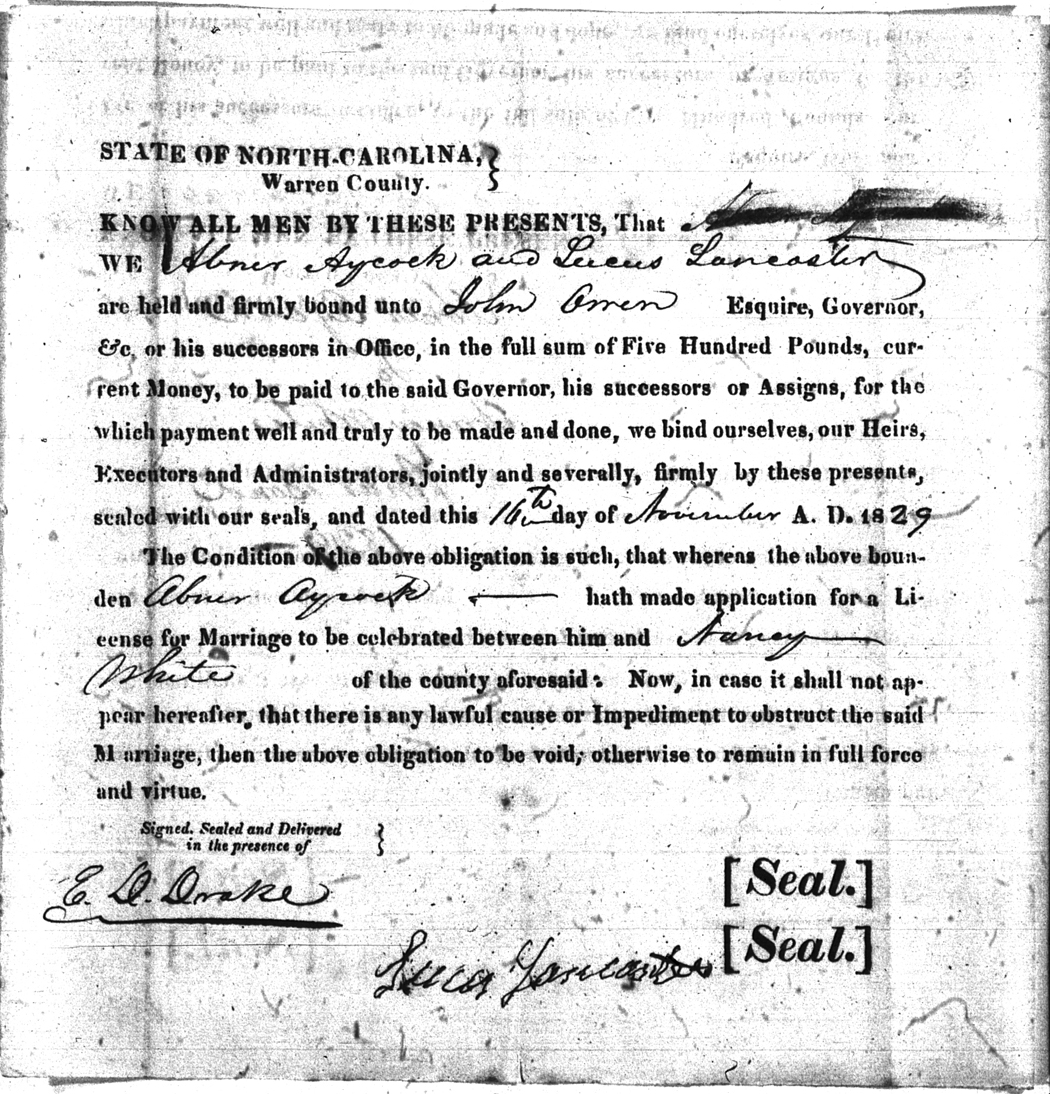 STATE OF NORTH-CAROLINA, }
Warren County.
KNOW ALL MEN BY THESE PRESENTS, That
WE Abner Aycock and Lucus Lancaster
are held and firmly bound unto John Owen Esquire, Governor,
&c. or his successors in Office, in the full sum of Five Hundred Pounds, cur-
rent Money, to be paid to the said Governor, his successors or Assigns, for the
which payment well and truly to be made and done, we bind ourselves, our Heirs,
Executors and Administrators, jointly and severally, firmly by these presents,
sealed with our seals, and dated this 16th day of November A. D. 1829
The Condition of the above obligation is such, that whereas the above boun-
den Abner Aycock — hath made application for a Li-
cense for Marriage to be celebrated between him and Nancy
White of the county aforesaid: Now, in case it shall not ap-
pear hereafter, that there is any lawful cause or Impediment to obstruct the said
Marriage, then the above obligation to be void; otherwise to remain in full force
and virtue.
Signed, Sealed and Delivered }
in the presence of
E. D. Drake
[Seal.]
Lucas Lancaster [Seal.]